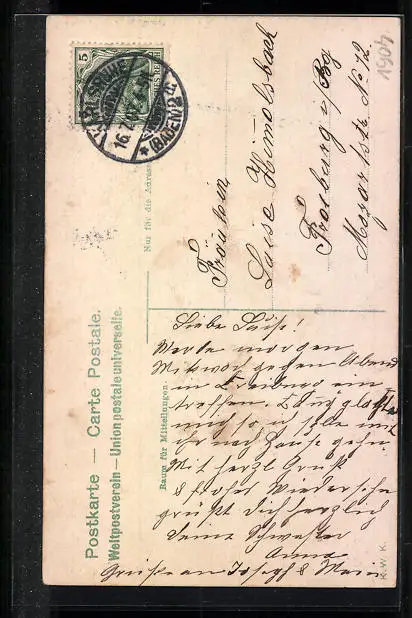 Postkarte — Carte Postale.
Weltpostverein — Union postale universelle.
Nur für die Adresse
Raum für Mitteilungen.
5
KARLSRUHE
16.7.
(BADEN) 2
Fräulein
Luise Himolsbach
Freiburg i/Bg
Mozartstr No 12
Liebe Luise!
Werde morgen
Mitwoch gegen Abend
in Freiburg ein
treffen.
ihr nach Hause gehn.
Mit herzl Gruß
& frohes Wiedersehn
grüßt dich herzlich
deine Schwester
Anna
Grüße an Joseph &
K.W.K.